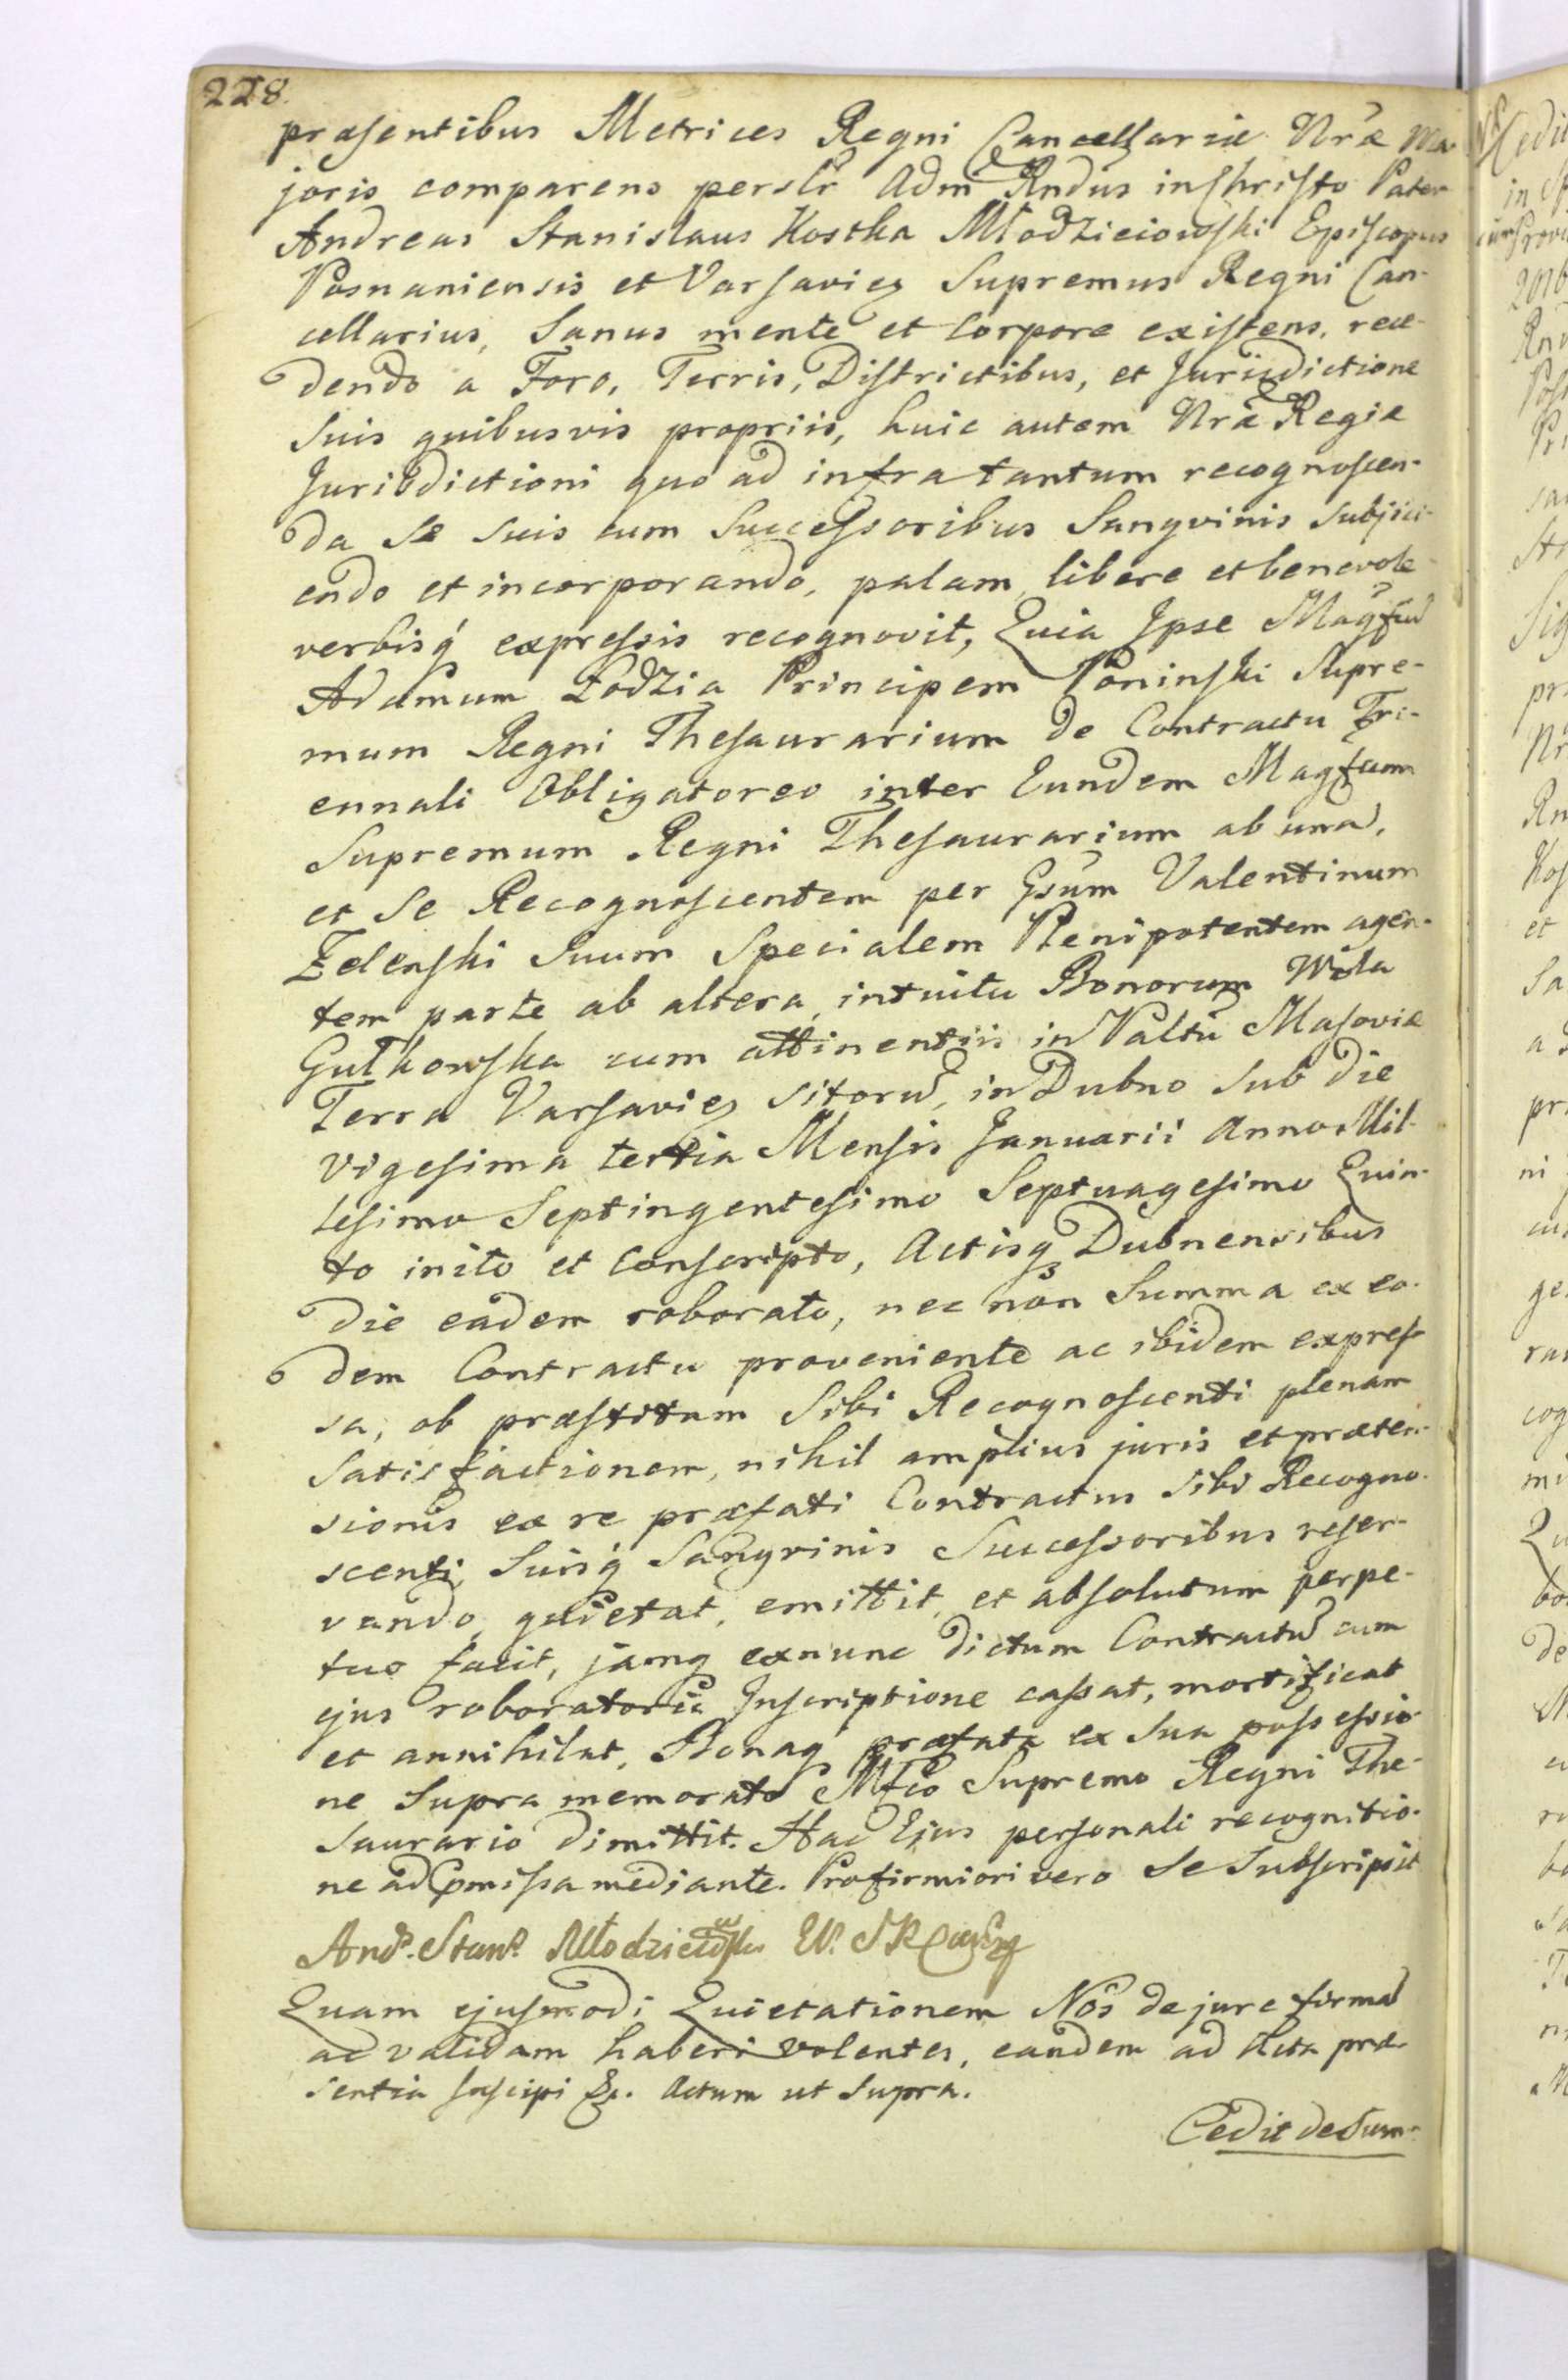 228.
præsentibus Metrices Regni Cancellariæ Nræ Ma-
joris comparens perslr Adm Rndus in Christo Pater
Andreas Stanislaus Kostka Młodzieiowski Episcopus
Posnaniensis et Varsavieñ Supremus Regni Can-
cellarius, Sanus mente et Corpore existens, rece-
dendo a Foro, Terris, Districtibus, et Jurisdictione
Suis quibusvis propriis, huic autem Nræ Regiæ
Jurisdictioni quo ad infra tantum recognoscen-
da se suis cum Successoribus Sangvinis subjici-
endo et incorporando, palam, libere et benevole
verbisq́ expressis recognovit, Quia Ipse Magfcũ
Adamum Łodzia Principem Poninski Supre-
mum Regni Thesaurarium de Contractu Tri-
ennali Obligatoreo inter Eundem Magfcum
Supremum Regni Thesaurarium ab una,
et Se Recognoscentem per Gsum Valentinum
Zelenski Suum Specialem Plenipotentem agen-
tem parte ab altera, intuitu Bonorum Wola
Gułkowska cum attinentiis in Paltũ Masoviæ
Terra Varsavieñ sitorũ, in Dubno sub die
vigesima tertia Mensis Januarii Anno Mil-
lesimo Septingentesimo Septuagesimo Quin-
to inito et conscripto, Actisq Dubnensibus
die eadem roborato, nec non Summa ex eo-
dem Contractu proveniente ac ibidem expres-
sa, ob præstitam Sibi Recognoscenti plenam
Satisfactionem, nihil amplius juris et præten-
sionis ex re præfati Contractus sibi Recogno-
scenti, Suisq́ Sangvinis Successoribus reser-
vando, quietat, emittit, et absolutum perpe-
tuo facit, jamq exnunc dictum Contractũ cum
ejus roboratoria Inscriptione cassat, mortificat
et annihilat, Bonaq́ præfata ex sua possessio-
ne supra memorato Mfco Supremo Regni The-
saurario dimittit. Hac Ejus personali recognitio-
ne ad præmissa mediante. Pro firmiori vero se subscripsit
Andr. Stanr. Młodzieiowski
Quam ejusmodi Quietationem Nos de jure firmã
ac validam haberi volentes, eandem ad Acta præ-
sentia suscipi &c. Actum ut supra.
Cedit de Sum-